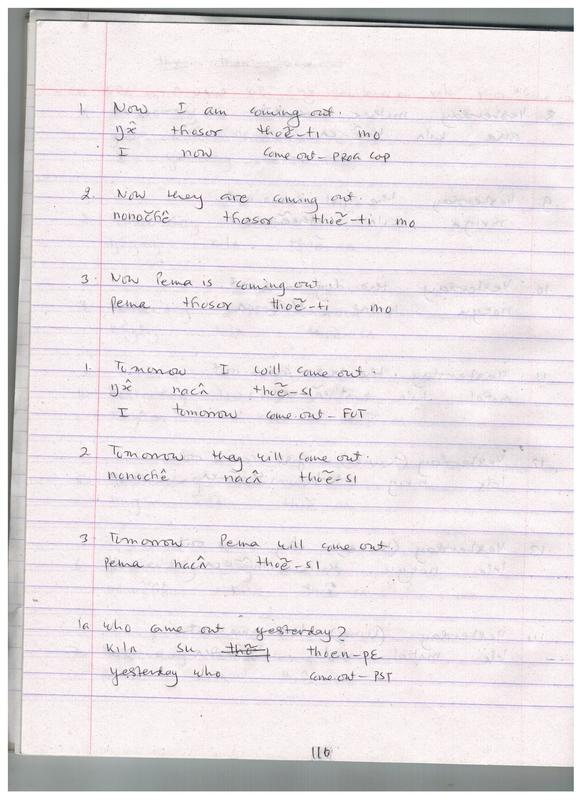 1. Now I am coming out.
ŋʌ̂ thosor thoẽ-ti mo
I now come out-PROG COP
2. Now they are coming out.
nonočhê thosor thoẽ-ti mo
3. Now Pema is coming out
pema thosor thoẽ-ti mo
1. Tomorrow I will come out.
ŋʌ̂ nacʌ̂ thoẽ-si
I tomorrow come.out-FUT
2. Tomorrow they will come out.
nonochê nacʌ̂ thoẽ-si
3 Tomorrow Pema will come out.
pema nacʌ̂ thoẽ-si
1a. who came out yesterday?
kilʌ su thoen-pɛ
yesterday who come.out-PST
116